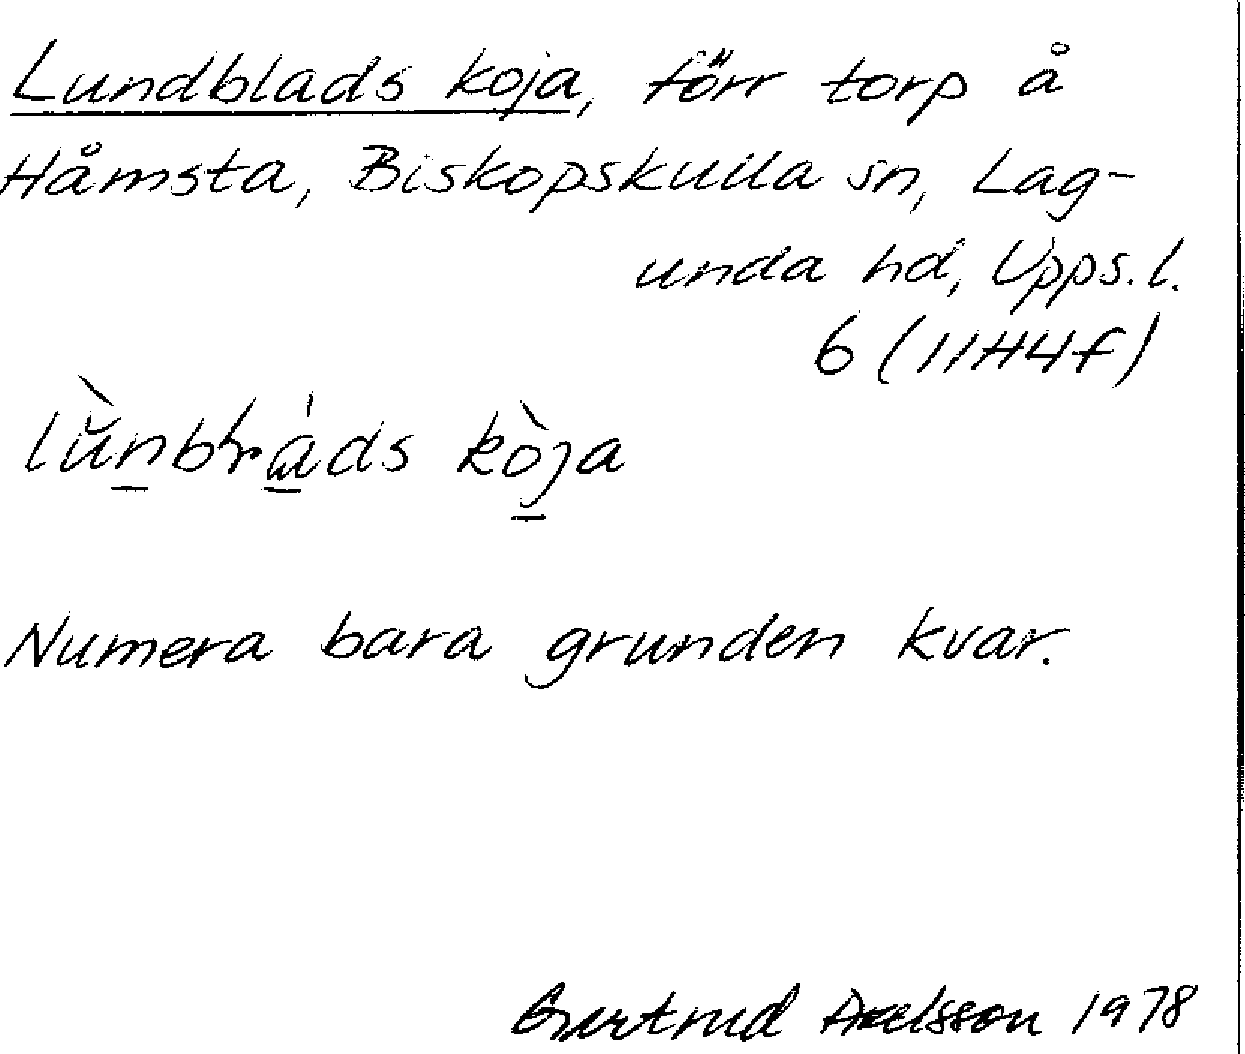 Lundblads koja, förr torp å
Håmsta, Biskopskulla sn, Lag-
unda hd, Upps. l.
6 (11H4f)
kòja
Numera bara grunden kvar.
Gertrud Axelsson 1978